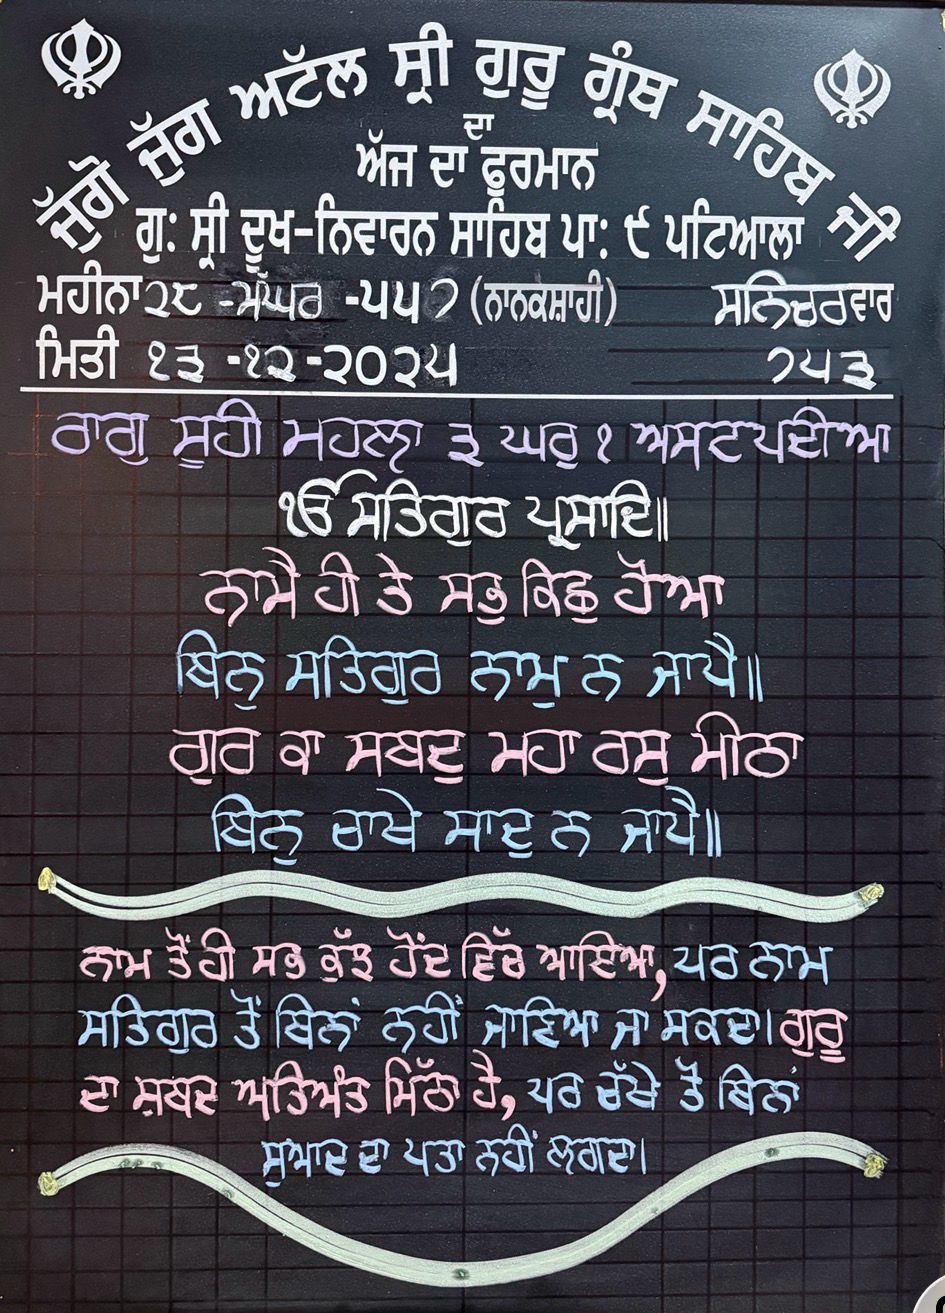 ਜੁੱਗੋ ਜੁੱਗ ਅਟੱਲ ਸ੍ਰੀ ਗੁਰੂ ਗ੍ਰੰਥ ਸਾਹਿਬ ਜੀ
ਦਾ
ਅੱਜ ਦਾ ਫੁਰਮਾਨ
ਗੁ: ਸ੍ਰੀ ਦੂਖ-ਨਿਵਾਰਨ ਸਾਹਿਬ ਪਾ: ੯ ਪਟਿਆਲਾ
ਮਹੀਨਾ ੨੮ -ਮੱਘਰ -੫੫੭ (ਨਾਨਕਸ਼ਾਹੀ) ਸਨਿਚਰਵਾਰ
ਮਿਤੀ ੧੩ -੧੨ -੨੦੨੫ ੭੫੩
ਰਾਗੁ ਸੂਹੀ ਮਹਲਾ ੩ ਘਰੁ ੧ ਅਸਟਪਦੀਆ
ੴ ਸਤਿਗੁਰ ਪ੍ਰਸਾਦਿ॥
ਨਾਮੈ ਹੀ ਤੇ ਸਭੁ ਕਿਛੁ ਹੋਆ
ਬਿਨੁ ਸਤਿਗੁਰ ਨਾਮੁ ਨ ਜਾਪੈ॥
ਗੁਰ ਕਾ ਸਬਦੁ ਮਹਾ ਰਸੁ ਮੀਠਾ
ਬਿਨੁ ਚਾਖੇ ਸਾਦੁ ਨ ਜਾਪੈ॥
ਨਾਮ ਤੋਂ ਹੀ ਸਭ ਕੁੱਝ ਹੋਂਦ ਵਿੱਚ ਆਇਆ, ਪਰ ਨਾਮ
ਸਤਿਗੁਰ ਤੋਂ ਬਿਨਾਂ ਨਹੀਂ ਜਾਣਿਆ ਜਾ ਸਕਦਾ। ਗੁਰੂ
ਦਾ ਸ਼ਬਦ ਅਤਿਅੰਤ ਮਿੱਠਾ ਹੈ, ਪਰ ਚੱਖੇ ਤੋਂ ਬਿਨਾਂ
ਸੁਆਦ ਦਾ ਪਤਾ ਨਹੀਂ ਲਗਦਾ।